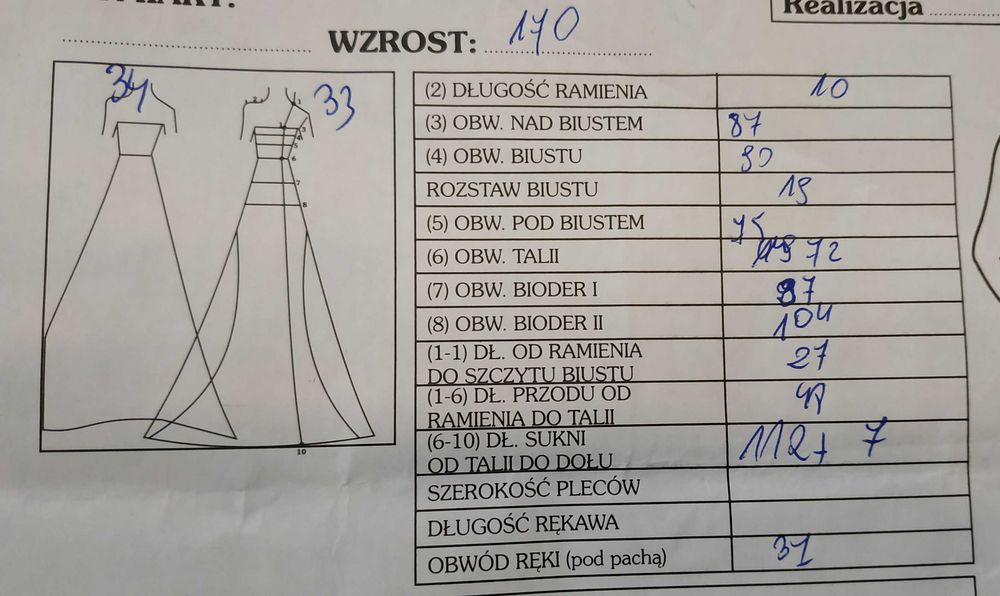 Realizacja
WZROST: 170
34
33
(2) DŁUGOŚĆ RAMIENIA 10
(3) OBW. NAD BIUSTEM 87
(4) OBW. BIUSTU 90
ROZSTAW BIUSTU 19
(5) OBW. POD BIUSTEM 75
(6) OBW. TALII 72
(7) OBW. BIODER I 97
(8) OBW. BIODER II 104
(1-1) DŁ. OD RAMIENIA 27
DO SZCZYTU BIUSTU
(1-6) DŁ. PRZODU OD
RAMIENIA DO TALII
(6-10) DŁ. SUKNI 112+ 7
OD TALII DO DOŁU
SZEROKOŚĆ PLECÓW
DŁUGOŚĆ RĘKAWA
OBWÓD RĘKI (pod pachą) 31
10